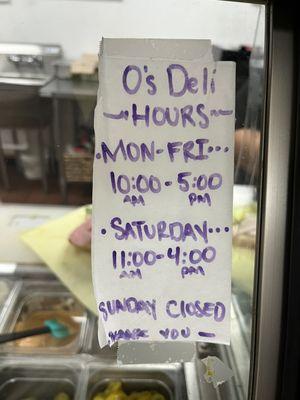 O's Deli
~HOURS~
• MON-FRI...
10:00 - 5:00
AM PM
• SATURDAY...
11:00 - 4:00
AM PM
SUNDAY CLOSED
THANK YOU —